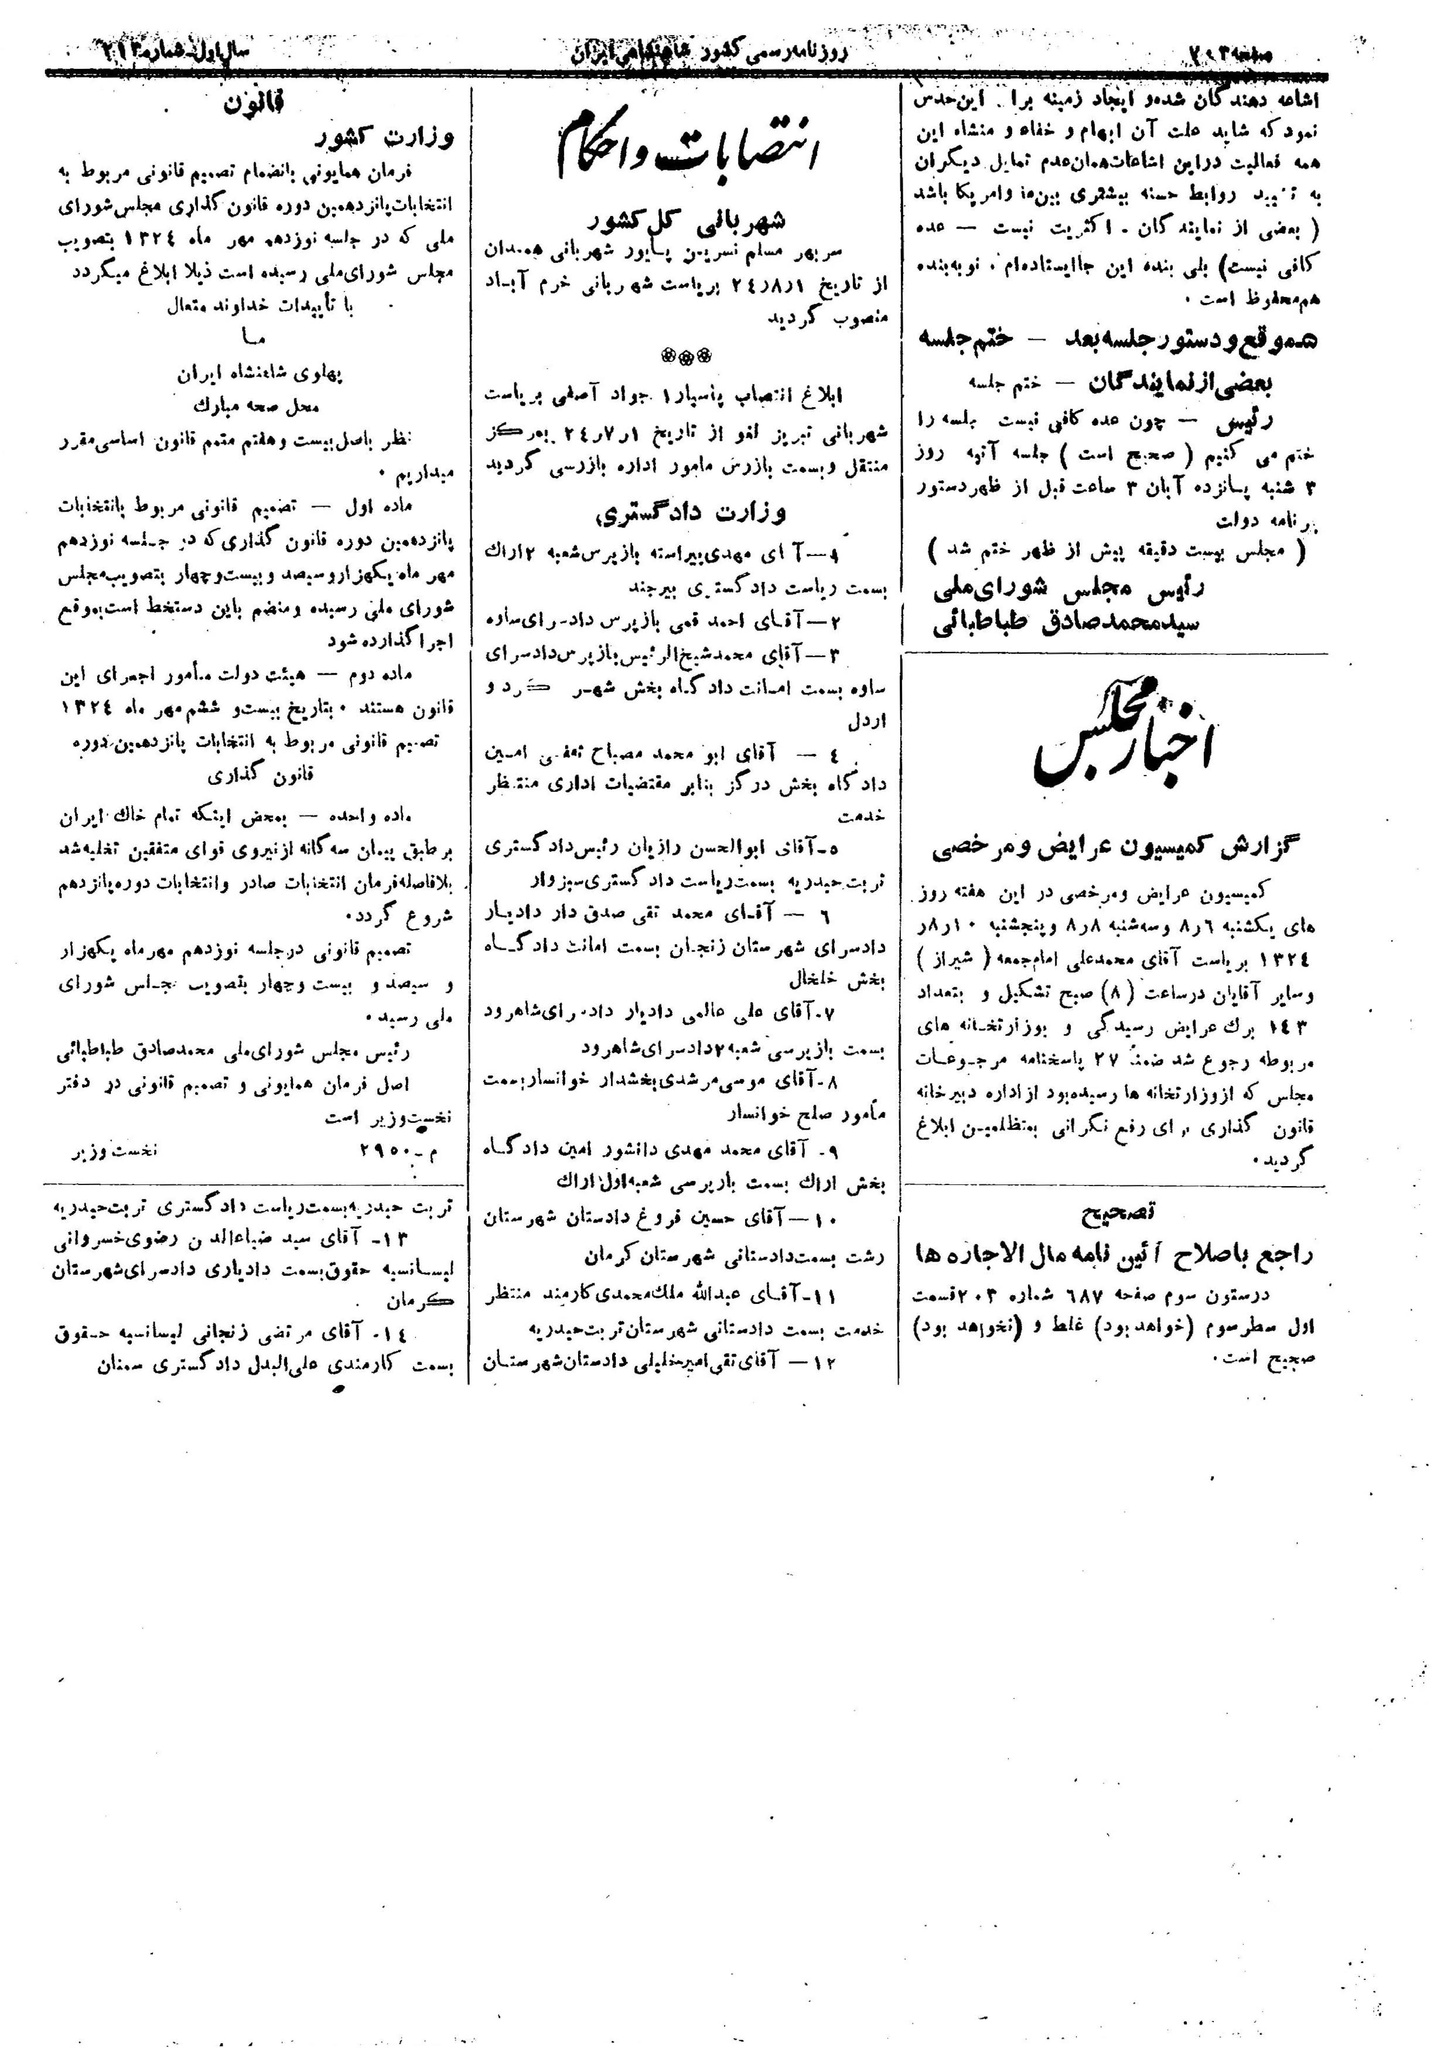 صفحه ۷۰۳
روزنامه رسمی کشور شاهنشاهی ایران
سال اول شماره ۲۱۲
اشاعه دهندگان شده و ایجاد زمینه برا . این حدس
نمود که شاید علت آن ابهام و خفاء و منشاء این
همه فعالیت در این اشاعات همان عدم تمایل دیگران
به تزیید روابط حسنه بیشتری بین ما و امریکا باشد
( بعضی از نمایندگان - اکثریت نیست — عده
کافی نیست) بلی بنده این جا ایستاده‌ام . نوبه بنده
هم محفوظ است .
موقع و دستور جلسه بعد — ختم جلسه
بعضی از نمایندگان — ختم جلسه
رئیس — چون عده کافی نیست جلسه را
ختم می کنیم ( صحیح است ) جلسه آتیه روز
۳ شنبه پانزده آبان ۳ ساعت قبل از ظهر دستور
برنامه دولت
( مجلس بیست دقیقه پیش از ظهر ختم شد )
رئیس مجلس شورای ملی
سید محمد صادق طباطبائی
اخبار مجلس
گزارش کمیسیون عرایض و مرخصی
کمیسیون عرایض و مرخصی در این هفته روز
های یکشنبه ۶ر۸ و سه شنبه ۸ر۸ و پنجشنبه ۱۰ر۸ر
۱۳۲٤ بریاست آقای محمد علی امام جمعه ( شیراز )
و سایر آقایان در ساعت (۸) صبح تشکیل و بتعداد
۱٤۳ برك عرایض رسیدگی و بوزارتخانه های
مربوطه رجوع شد ضمناً ۲۷ پاسخنامه مرجوعات
مجلس که از وزارتخانه ها رسیده بود از اداره دبیرخانه
قانون گذاری برای رفع نگرانی بمتظلمین ابلاغ
گردید .
تصحیح
راجع باصلاح آئین نامه مال الاجاره ها
در ستون سوم صفحه ۶۸۷ شماره ۲۰۳ قسمت
اول سطر سوم (خواهد بود) غلط و (نخواهد بود)
صحیح است .
انتصابات و احکام
شهربانی کل کشور
سربهر مسلم نسرین پایور شهربانی همدان
از تاریخ ۱ر۸ر۲٤ بریاست شهربانی خرم آباد
منصوب گردید
ابلاغ انتصاب پاسیار ۱ جواد آصفی بریاست
شهربانی تبریز لغو از تاریخ ۱ر۷ر۲٤ بمرکز
منتقل و بسمت بازرس مامور اداره بازرسی گردید
وزارت دادگستری
۱— آ ای مهدی پیراسته بازپرس شعبه ۲ اراك
بسمت ریاست دادگستری بیرجند
۲— آقای احمد قمی بازپرس دادسرای ساوه
۳— آقای محمد شیخ الرئیس بازپرس دادسرای
ساوه بسمت امانت دادگاه بخش شهر کرد و
اردل
٤ — آقای ابو محمد مصباح امین
دادگاه بخش درگز بنابر مقتضیات اداری منتظر
خدمت
۵- آقای ابوالحسن رازیان رئیس دادگستری
تربت حیدریه بسمت ریاست دادگستری سبزوار
۶ — آقای محمد تقی صدق دار دادیار
دادسرای شهرستان زنجان بسمت امانت دادگاه
بخش خلخال
۷- آقای علی عالمی دادیار دادسرای شاهرود
بسمت بازپرسی شعبه ۲ دادسرای شاهرود
۸- آقای موسی مرشدی بخشدار خوانسار بسمت
مأمور صلح خوانسار
۹- آقای محمد مهدی دانشور امین دادگاه
بخش اراك بسمت بازپرسی شعبه اول اراك
۱۰— آقای حسین فروغ دادستان شهرستان
رشت بسمت دادستانی شهرستان کرمان
۱۱- آقای عبدالله ملك محمدی کارمند منتظر
خدمت بسمت دادستانی شهرستان تربت حیدریه
۱۲— آقای تقی امیر خلیلی دادستان شهرستان
قانون
وزارت کشور
فرمان همایونی بانضمام تصمیم قانونی مربوط به
انتخابات پانزدهمین دوره قانون گذاری مجلس شورای
ملی که در جلسه نوزدهم مهر ماه ۱۳۲٤ بتصویب
مجلس شورای ملی رسیده است ذیلا ابلاغ میگردد
با تأییدات خداوند متعال
ما
پهلوی شاهنشاه ایران
محل صحه مبارك
نظر باصل بیست و هفتم متمم قانون اساسی مقرر
میداریم .
ماده اول — تصمیم قانونی مربوط بانتخابات
پانزدهمین دوره قانون گذاری که در جلسه نوزدهم
مهر ماه یکهزار و سیصد و بیست و چهار بتصویب مجلس
شورای ملی رسیده و منضم باین دستخط است بموقع
اجرا گذارده شود
ماده دوم — هیئت دولت مأمور اجرای این
قانون هستند . بتاریخ بیست و ششم مهر ماه ۱۳۲٤
تصمیم قانونی مربوط به انتخابات پانزدهمین دوره
قانون گذاری
ماده واحده — بمحض اینکه تمام خاك ایران
بر طبق پیمان سه گانه از نیروی قوای متفقین تخلیه شد
بلافاصله فرمان انتخابات صادر و انتخابات دوره پانزدهم
شروع گردد.
تصمیم قانونی در جلسه نوزدهم مهر ماه یکهزار
و سیصد و بیست و چهار بتصویب مجلس شورای
ملی رسید .
رئیس مجلس شورای ملی محمد صادق طباطبائی
اصل فرمان همایونی و تصمیم قانونی در دفتر
نخست وزیر است
م-۲۹۵۰ نخست وزیر
تربت حیدریه بسمت ریاست دادگستری تربت حیدریه
۱۳- آقای سید ضیاءالدین رضوی خسروانی
لیسانسیه حقوق بسمت دادیاری دادسرای شهرستان
کرمان
۱٤- آقای مرتضی زنجانی لیسانسیه حقوق
بسمت کارمندی علی البدل دادگستری سمنان